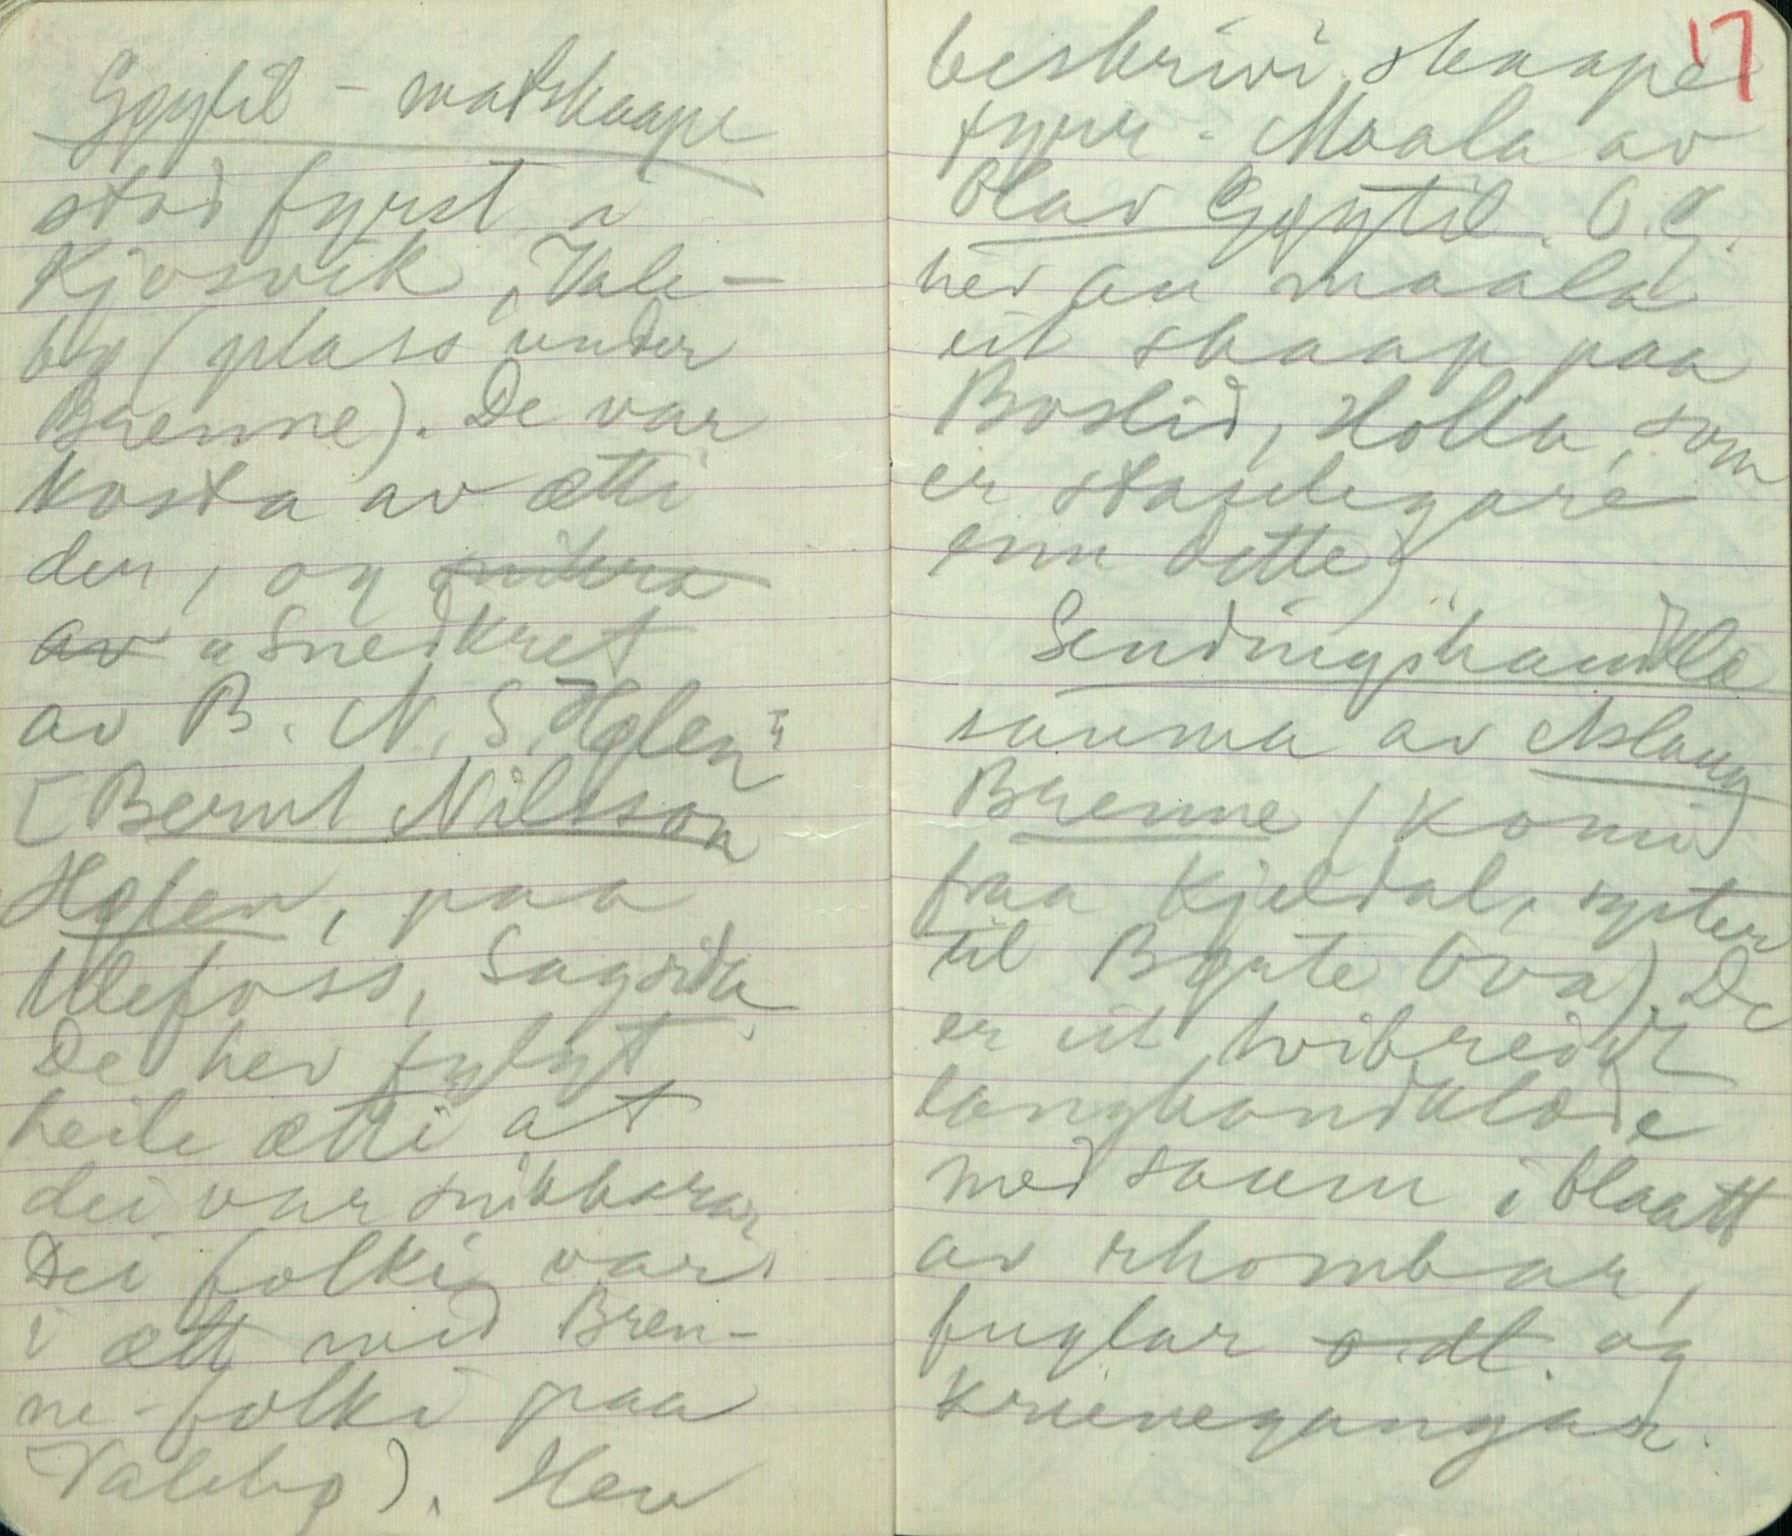 Gøytil - matskaape
stod fyrst i
Kjosvik, Vale-
bø (plass under
Brenne). De var
kosta av ætti
der, og snikra
av "Snedkret
av B. N. S. Holen"
[Bernt Nilsson
Holen, paa
Ulefoss, Sagsida
De hev fylgt
heile ætti at
dei var snikkarar
Dei folki var
i ætt med Bren-
ne-folki paa
Valebø). Hev
17
beskrivi skaape
fyrr - Maala av
Olav Gøytil. O. G.
hev au maala
eit skaap paa
Boslid, Holla, som
er staselegare
enn dette)
Sendingshandklæ
sauma av Aslaug
Brenne (komi
fraa Kjeldal, syster
til Bøute Ova). De
er eit tvibreidt
langhandklæde
med saum i blaatt
av rhombar,
fuglar o. dl. og
krunegangar.